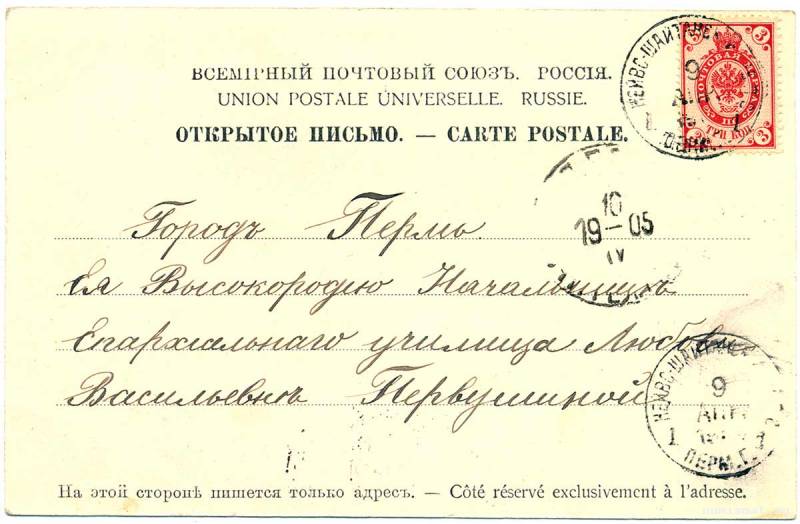 ВСЕМІРНЫЙ ПОЧТОВЫЙ СОЮЗЪ. РОССІЯ.
UNION POSTALE UNIVERSELLE. RUSSIE.
ОТКРЫТОЕ ПИСЬМО. — CARTE POSTALE.
3 3
ПОЧТОВАЯ МАРКА
ТРИ КОП.
3 3
НЕЙВО-ШАЙТАНСК
9
АПР
1
ПЕРМ.
10
19—05
IV
Городъ Пермь.
Ея Высокородію Начальницѣ
Епархіальнаго училища Любовь
Васильевнѣ Первушиной
НЕЙВО-ШАЙТАНСК
9
АПР
1
ПЕРМ. Г.
На этой сторонѣ пишется только адресъ. — Côté réservé exclusivement à l'adresse.